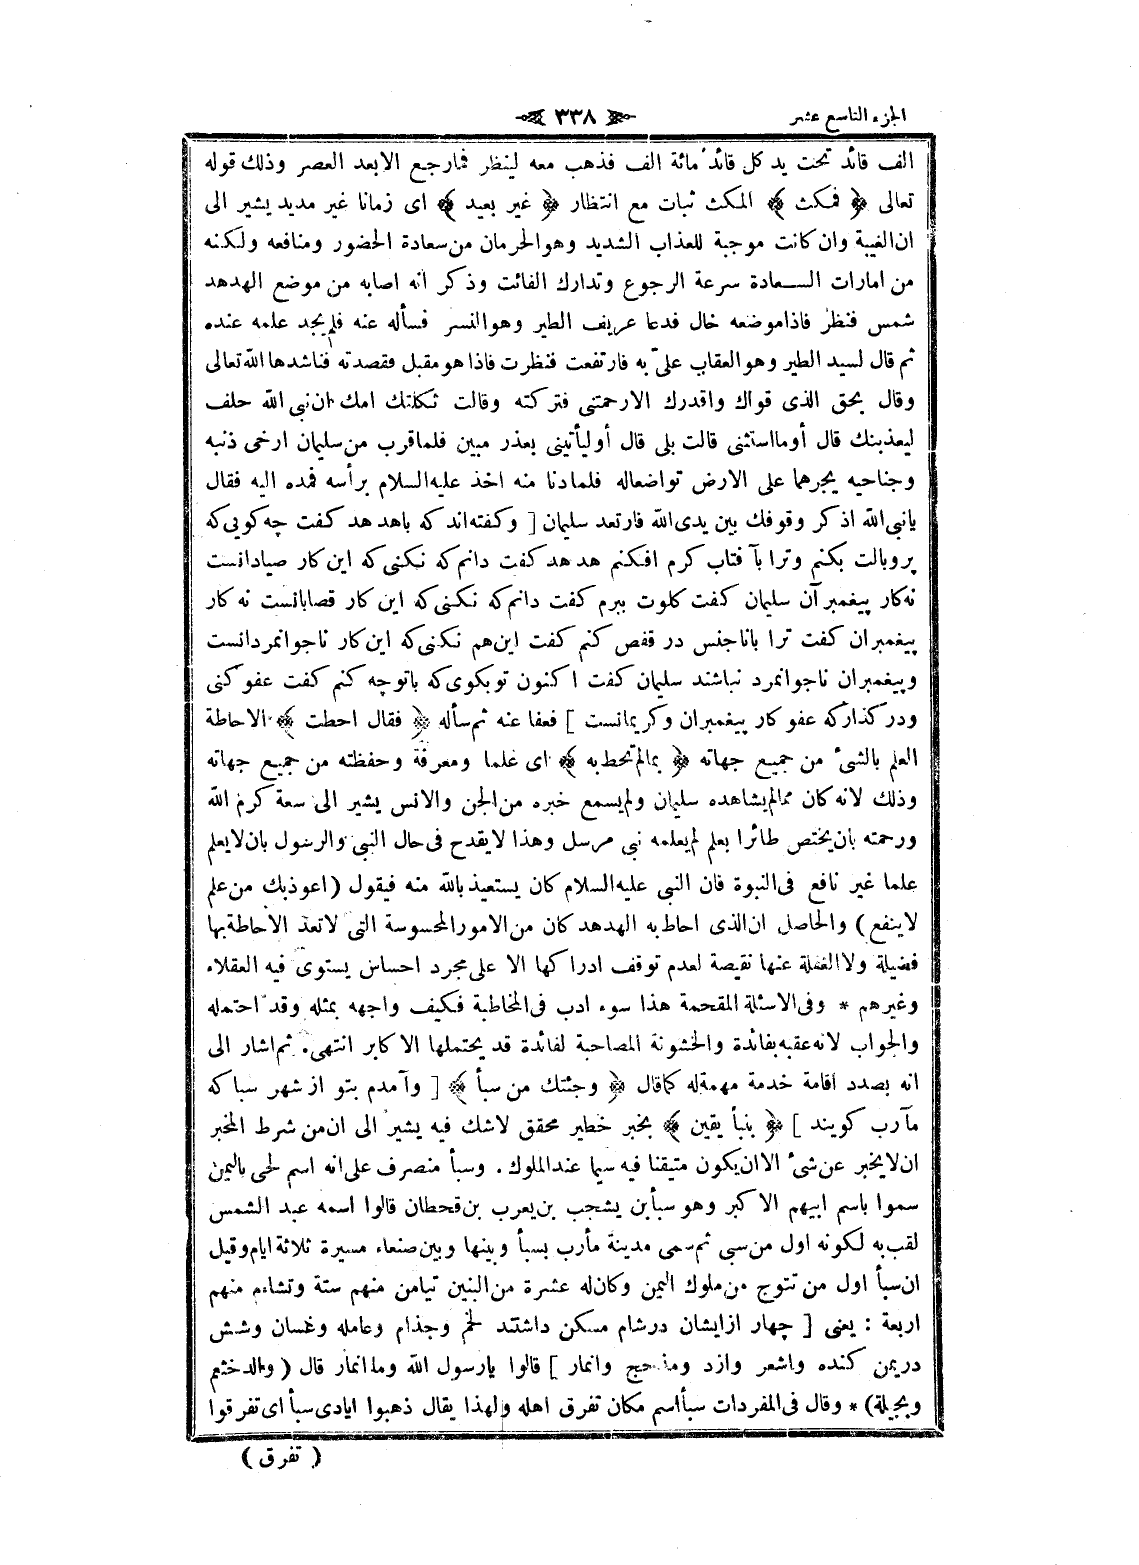 الجزء التاسع عشر
﴿ ٣٣٨ ﴾
الف قائد تحت يد كل قائد مائة الف فذهب معه لينظر فمارجع الابعد العصر وذلك قوله
تعالى ﴿ فمكث ﴾ المكث ثبات مع انتظار ﴿ غير بعيد ﴾ اى زمانا غير مديد يشير الى
ان الغيبة وان كانت موجبة للعذاب الشديد وهو الحرمان من سعادة الحضور ومنافعه ولكنه
من امارات الســعادة سرعة الرجوع وتدارك الفائت وذكر انه اصابه من موضع الهدهد
شمس فنظر فاذا موضعه خال فدعا عريف الطير وهو النسر فسأله عنه فلم يجد علمه عنده
ثم قال لسيد الطير وهو العقاب علىّ به فارتفعت فنظرت فاذا هو مقبل فقصدته فناشدها الله تعالى
وقال بحق الذى قواك واقدرك الارحمتنى فتركته وقالت ثكلتك امك ان نبى الله حلف
ليعذبنك قال أوما استثنى قالت بلى قال أوليأتينى بعذر مبين فلما قرب من سليمان ارخى ذنبه
وجناحيه يجرهما على الارض تواضعاله فلمادنا منه اخذ عليه السلام برأسه فمده اليه فقال
يانبى الله اذكر وقوفك بين يدى الله فارتعد سليمان [ وكفته اند كه باهد هد كفت چه كويى كه
پروبالت بكنم وترا بآ فتاب كرم افكنم هدهد كفت دانم كه نكنى كه اين كار صيادانست
نه كار پيغمبرآن سليمان كفت كلوت ببرم كفت دانم كه نكنى كه اين كار قصابانست نه كار
پيغمبران كفت ترا باناجنس در قفص كنم كفت اين هم نكنى كه اين كار ناجوانمردانست
وپيغمبران ناجوانمرد نباشند سليمان كفت اكنون تو بكوى كه باتوچه كنم كفت عفو كنى
ودر كذاركه عفو كار پيغمبران وكريمانست ] فعفا عنه ثم سأله ﴿ فقال احطت ﴾ الاحاطة
العلم بالشئ من جميع جهاته ﴿ بمالم تحط به ﴾ اى علما ومعرفة وحفظته من جميع جهاته
وذلك لانه كان ممالم يشاهده سليمان ولم يسمع خبره من الجن والانس يشير الى سعة كرم الله
ورحمته بان يختص طائرا بعلم لم يعلمه نبى مرسل وهذا لايقدح فى حال النبى والرسول بان لايعلم
علما غير نافع فى النبوة فان النبى عليه السلام كان يستعيذ بالله منه فيقول (اعوذبك من علم
لاينفع) والحاصل ان الذى احاط به الهدهد كان من الامور المحسوسة التى لاتعد الاحاطة بها
فضيلة ولا الغفلة عنها نقيصة لعدم توقف ادراكها الا على مجرد احساس يستوى فيه العقلاء
وغيرهم * وفى الاسئلة المقحمة هذا سوء ادب فى المخاطبة فكيف واجهه بمثله وقد احتمله
والجواب لانه عقبه بفائدة والخشونة المصاحبة لفائدة قد يحتملها الاكابر انتهى. ثم اشار الى
انه بصدد اقامة خدمة مهمة له كما قال ﴿ وجئتك من سبأ ﴾ [ وآمدم بتو از شهر سبا كه
مآرب كويند ] ﴿ بنبأ يقين ﴾ بخبر خطير محقق لاشك فيه يشير الى ان من شرط المخبر
ان لايخبر عن شئ الا ان يكون متيقنا فيه سيما عند الملوك . وسبأ منصرف على انه اسم لحى باليمن
سموا باسم ابيهم الاكبر وهو سبأ بن يشجب بن يعرب بن قحطان قالوا اسمه عبد الشمس
لقب به لكونه اول من سبى ثم سمى مدينة مأرب بسبأ وبينها وبين صنعاء مسيرة ثلاثة ايام وقيل
ان سبأ اول من تتوج من ملوك اليمن وكان له عشرة من البنين تيامن منهم ستة وتشاءم منهم
اربعة : يعنى [ چهار ازايشان درشام مسكن داشتند لخم وجذام وعامله وغسان وشش
دريمن كنده واشعر وازد ومذحج وانمار ] قالوا يارسول الله وما انمار قال ( والد خثعم
وبجيلة) * وقال فى المفردات سبأ اسم مكان تفرق اهله ولهذا يقال ذهبوا ايادى سبأ اى تفرقوا
( تفرق )